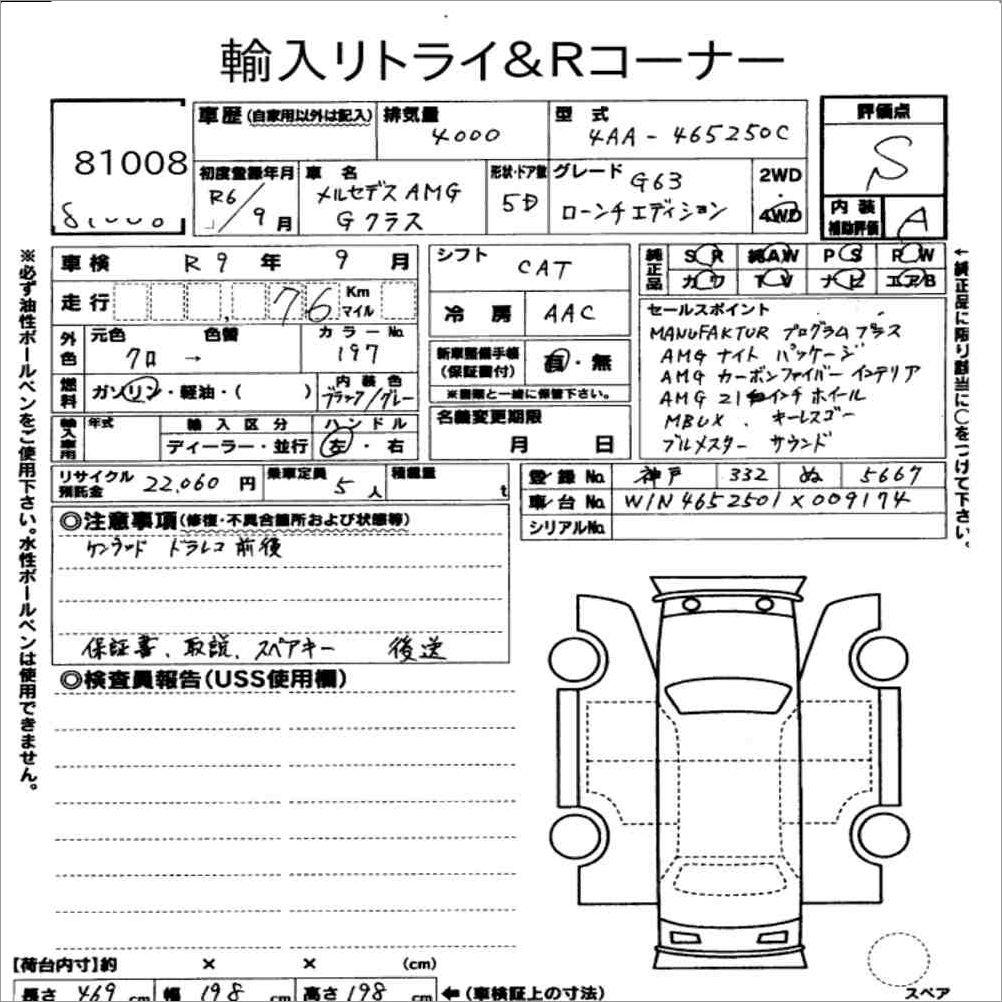 輸入リトライ&Rコーナー
81008
車歴(自家用以外は記入)
排気量
4000
型式
4AA-465250C
評価点
S
初度登録年月
R6/9月
車名
メルセデスAMG
Gクラス
形状・ドア数
5D
グレード
G63
ローンチエディション
2WD
・
4WD
内装
補助評価
A
車検 R9年 9月
走行 76 Km
マイル
外色
元色 色替
クロ →
カラーNo.
197
燃料
ガソリン・軽油・( )
内装色
ブラック/グレー
輸入車用
年式
輸入区分
ディーラー・並行
ハンドル
左・右
シフト
CAT
冷房 AAC
新車整備手帳
(保証書付)
有・無
※書類と一緒に保管下さい。
名義変更期限
月 日
純正品
SR 純AW PS PW
カワ TV ナビ エアB
セールスポイント
MANUFAKTUR プログラムプラス
AMG ナイト パッケージ
AMG カーボンファイバー インテリア
AMG 21インチホイール
MBUX . キーレスゴー
ブルメスター サウンド
リサイクル
預託金
22,060円
乗車定員
5人
積載量
t
登録No. 神戸 332 ぬ 5667
車台No. W1N4652501X009174
シリアルNo.
◎注意事項(修復・不具合箇所および状態等)
ケンウッド ドラレコ 前後
保証書、取説、スペアキー 後送
◎検査員報告(USS使用欄)
※必ず油性ボールペンをご使用下さい。水性ボールペンは使用できません。
←純正品に限り該当に○をつけて下さい。
【荷台内寸】約 × × (cm)
長さ 469 cm 幅 198 cm 高さ 198 cm ←(車検証上の寸法)
スペア